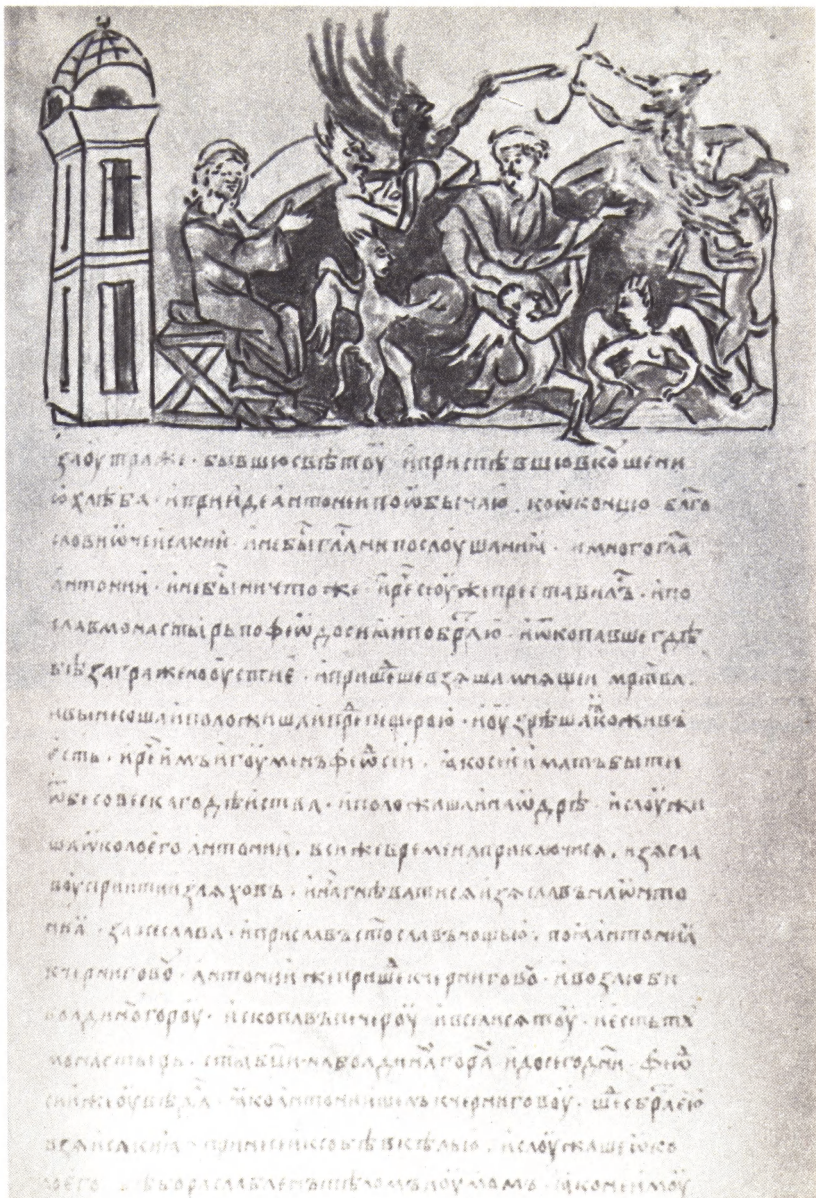 заоутраже · бывшю свѣтоу и приспѣвшю вкѹшени
ѡ хлѣба · и прииде антонеи по ѡбычаю ко ѡконцю благо
слови ѿче исакии · и не бы гла ни послоушаниꙗ · и много гла
антонии · и не бы ничтоже · и рече се оуже преставилъ · и по
слав монастырь по феѡдосиꙗ и по братю · и ѿкопавше гдѣ
бѣ заграженo оустие · и пришеше взѧша и мнѧщеи мртва ·
и вынесоша и положиша и пре пещерою · и оузрѣша ꙗко живъ
есть · и рече имъ игоуменъ феѡсии · ꙗко се иматъ быти
ѿ бесовескаго дѣиства · и положиша и на ѡдрѣ · и слоужи
ша ѡколо его антонии · в си же времена приключисѧ изѧсла
воу приити из лѧховъ · и нача гнѣватисѧ изѧславъ на ѡнто
ниꙗ · за всеслава · и приславъ стославъ нощью · поꙗ антониꙗ
к чернигово · антонии же прише к чернигово · и возлюби
болдины гороу · ископавъ печероу и вселисѧ тоу · и есть та
монастырь · сты бци на болдина гора и до сего дни · феѡ
сии же оувѣда · ꙗко антонии шелъ к черниговоу · ше с братею
взѧ исакиꙗ · принесе и к собѣ в кѣлью · и слоужаше ѡко
ло его · бѣ бо раслабленъ тѣломъ и оумомъ · ꙗко не и моу